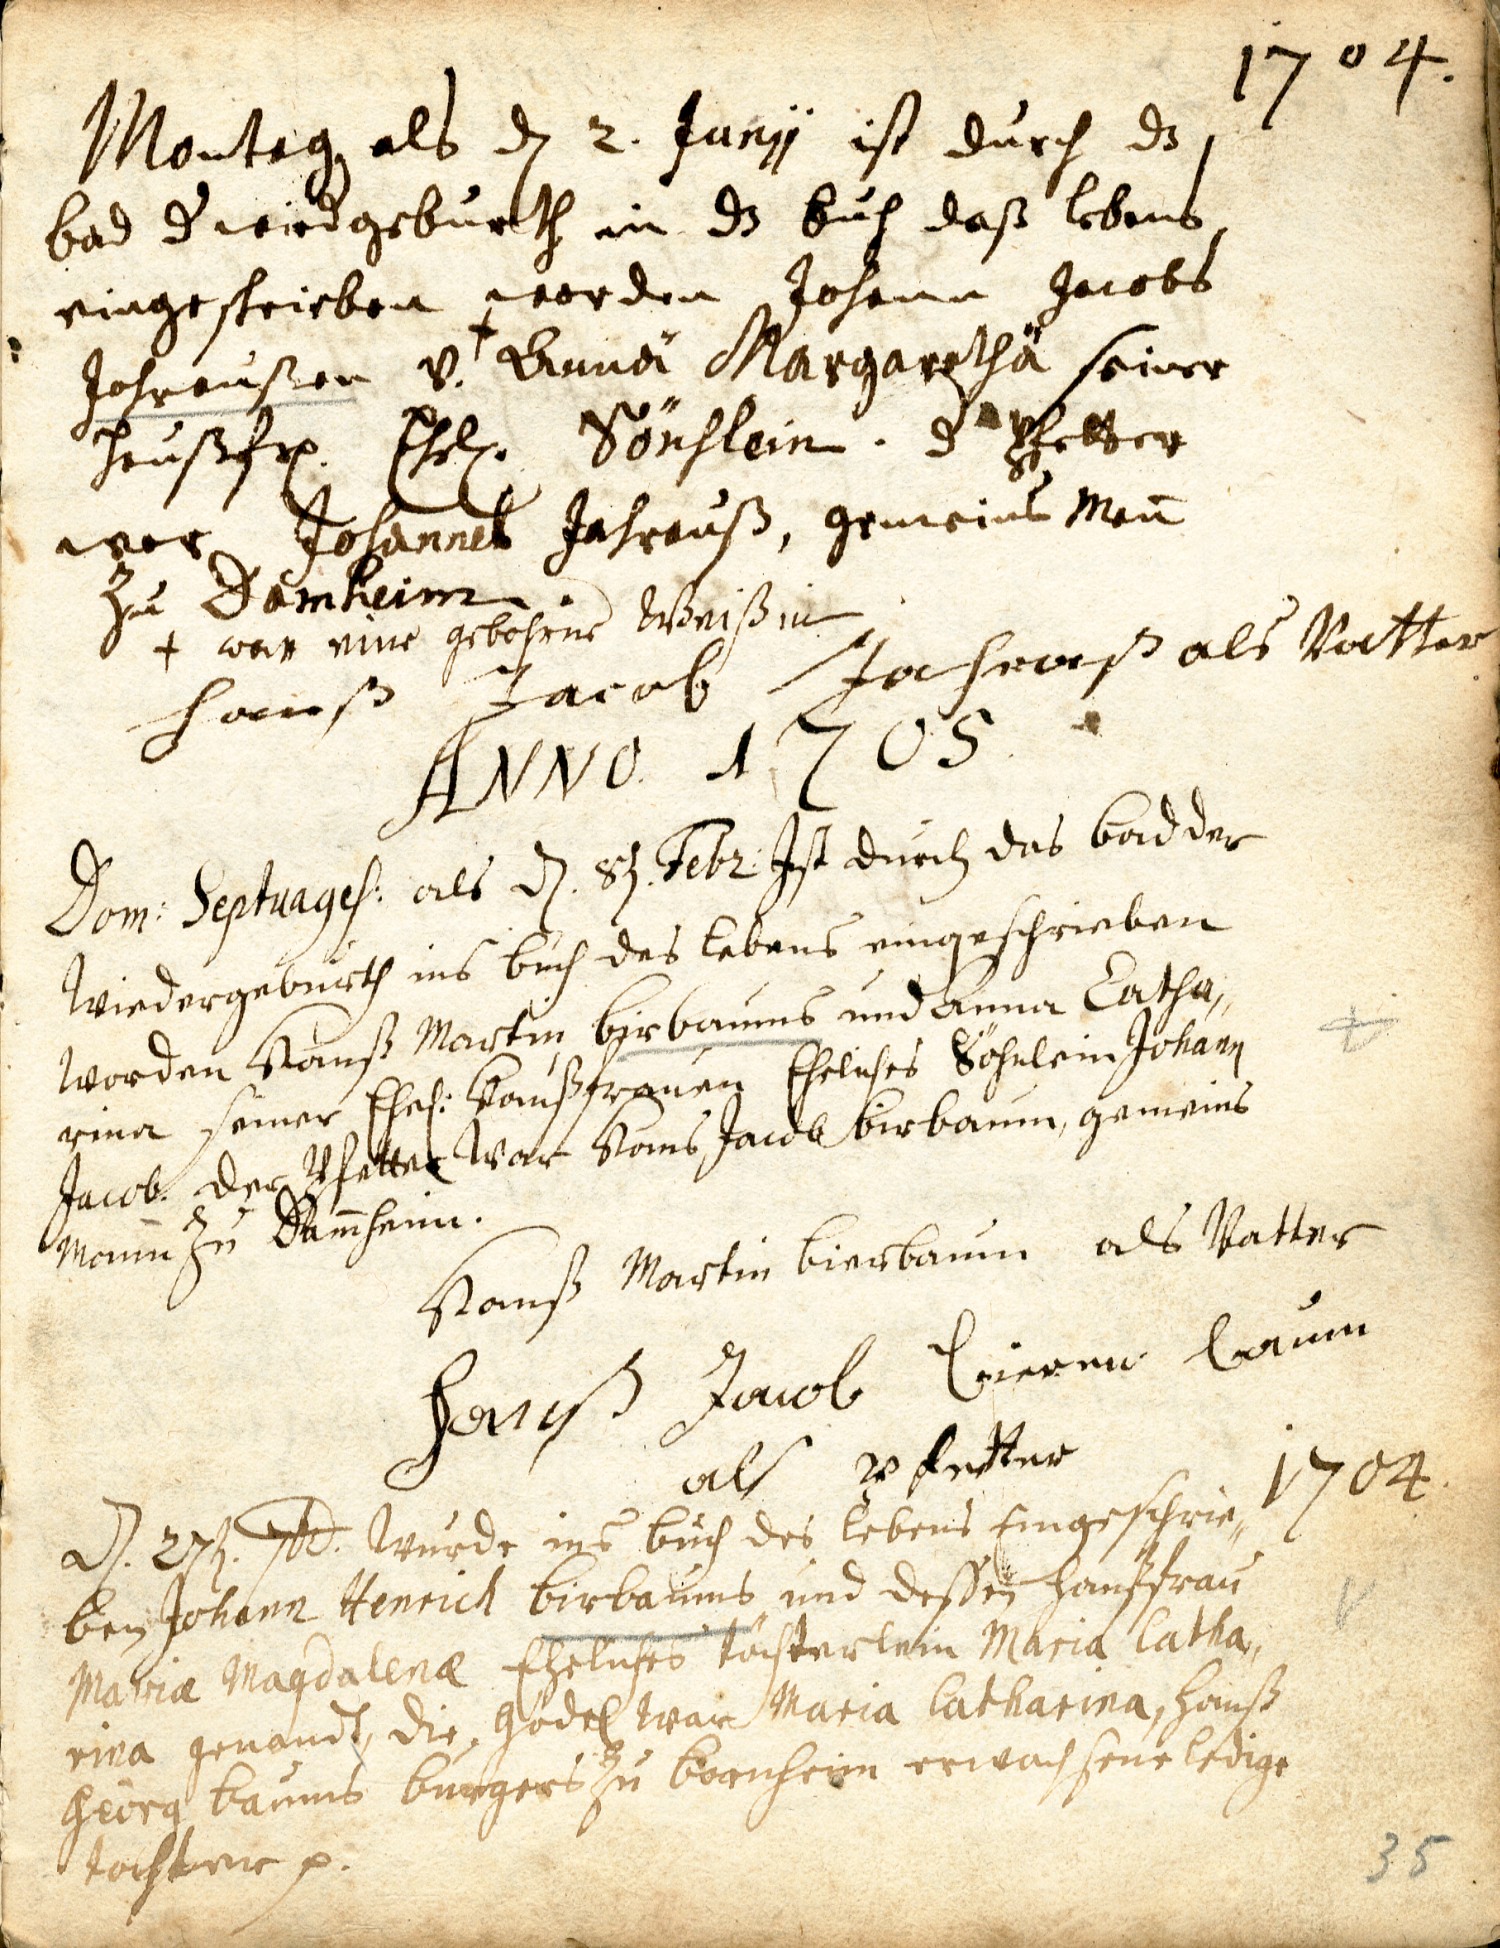 1704.
Montag als dẽ 2. Junij ist durch dz
bad dˢ wiedgeburth in dz buch daß lebens
eingeschrieben worden Johann Jacobs
Jahraußen v. † Annä Margarethä seiner
haußfr. Ehel. Söhnlein. dˢ Pfetter
war Johannes Jahrauß, gemeins Man̄
zu Damheim.
† war eine gebohrne Weißin
Hanß Jacob Jahrauß als Vatter
ANNO. 1705
Dom: Septuages: als d. 8t. Febr: Ist durch das bad der
Wiedergeburth ins buch des lebens eingeschrieben
worden Hanß Martin birbaums und Anna Catha„
rina seiner Ehel: Haußfrauen Eheliches Söhnlein Johann
Jacob. der Pfetter war Hans Jacob birbaum, gemeins
Mann zu Dam̄heim.
Hanß Martin bierbaum als Vatter
Hanß Jacob bieren baum
als pfetter
1704.
D. 27t. 7br. wurde ins buch des lebens Eingeschrie„
ben Johann Henrich birbaums und dessen haußfrau
Mariæ Magdalenæ Eheliches töchterlein Maria Catha„
rina genandt, die Gödel war Maria Catharina, Hanß
Georg baums burgers zu bornheim erwachsene ledige
tochter p.
35